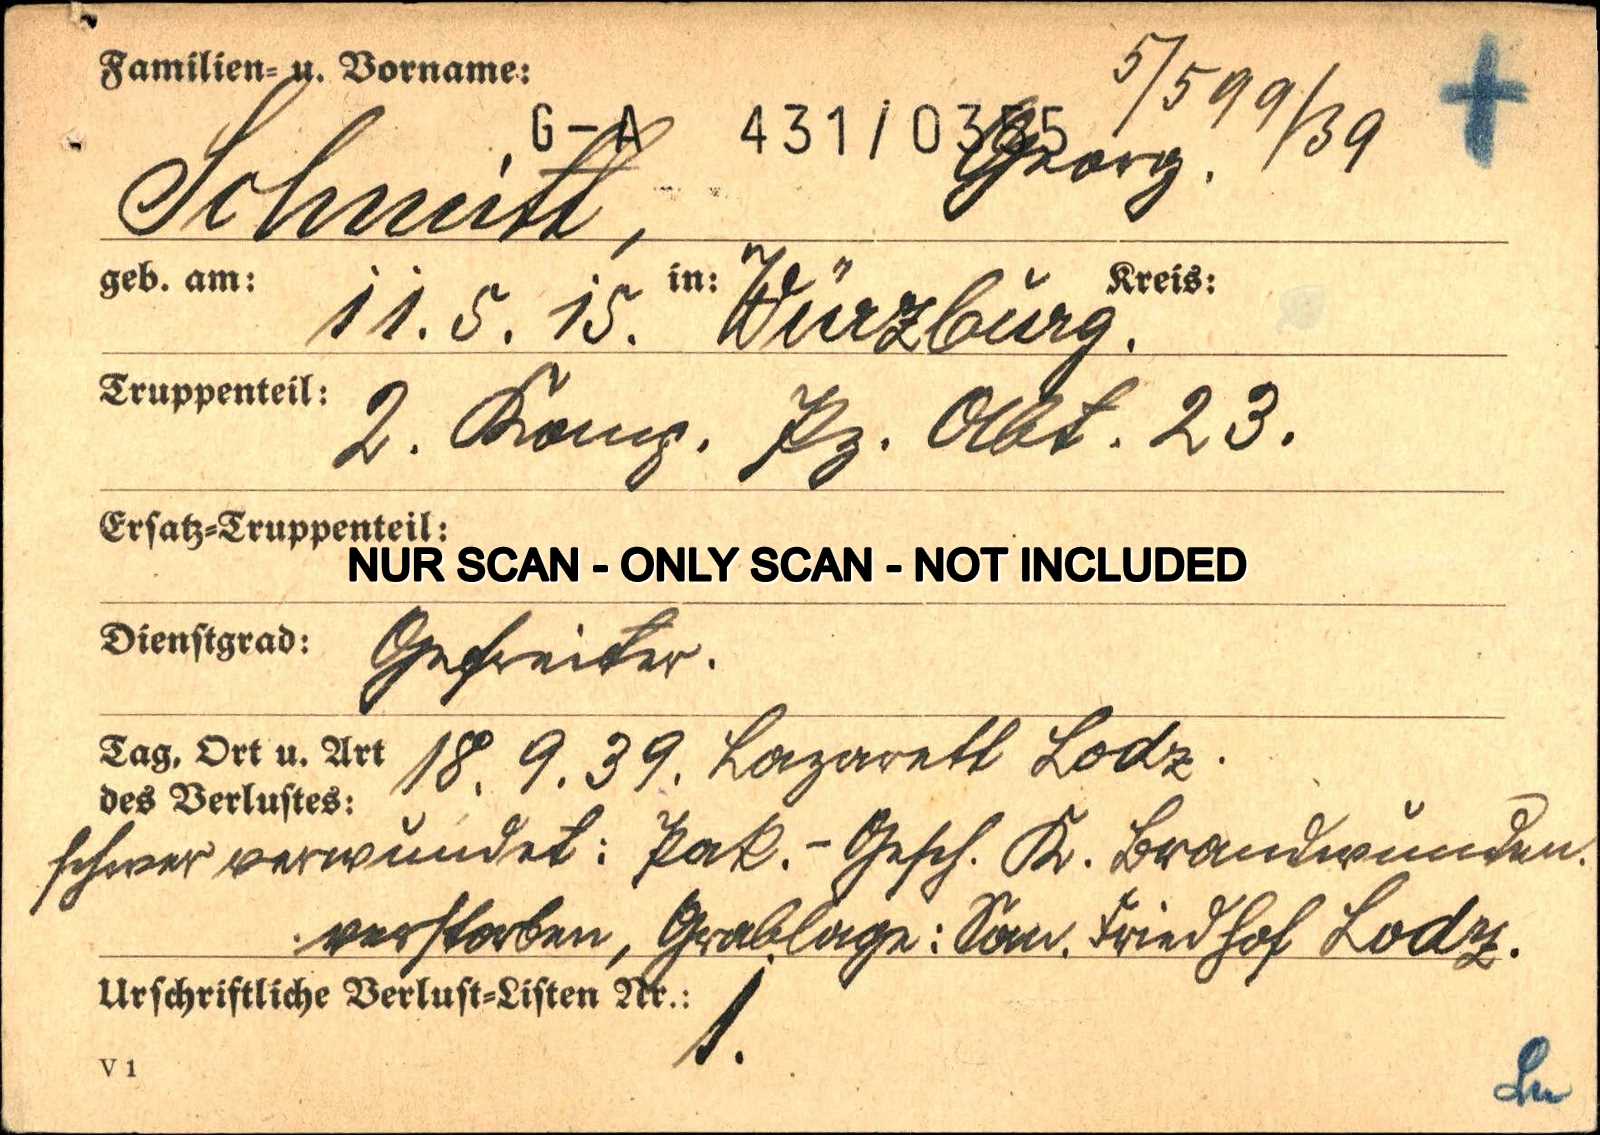 Familien= u. Vorname:
5/599/39
G-A 431/0355
Schmitt, Georg.
geb. am: 11.5.15. in: Würzburg. Kreis:
Truppenteil: 2. Komp. Pz. Abt. 23.
Ersatz=Truppenteil:
NUR SCAN - ONLY SCAN - NOT INCLUDED
Dienstgrad: Gefreiter.
Tag, Ort u. Art 18.9.39. Lazarett Lodz.
des Verlustes:
schwer verwundet: Pak.-Gesch. K. Brandwunden.
verstorben, Grablage: San. Friedhof Lodz.
Urschriftliche Verlust=Listen Nr.: 1.
V 1